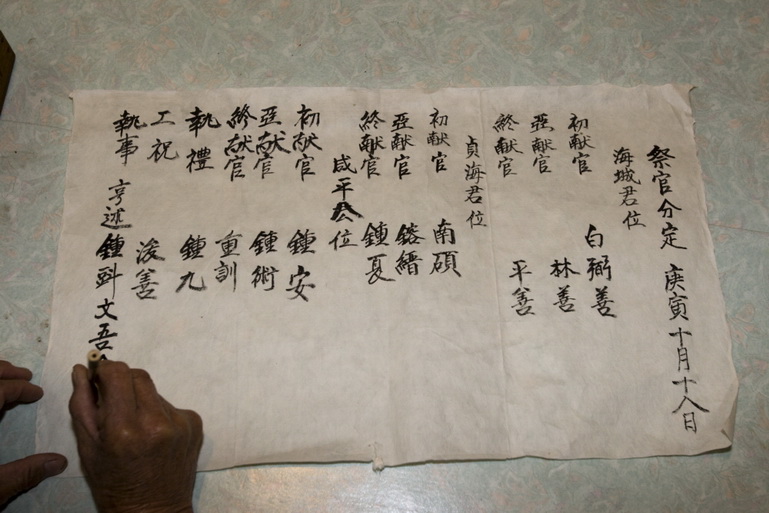 祭官分定 庚寅十月十八日
海城君位
初献官 白弼善
亞献官 林善
終献官 平善
貞海君位
初献官 南碩
亞献官 鎔縉
終献官 鍾夏
咸平公位
初献官 鍾安
亞献官 鍾術
終献官 重訓
執禮 鍾九
工祝 浚善
執事 亨述 鍾斗 文吾